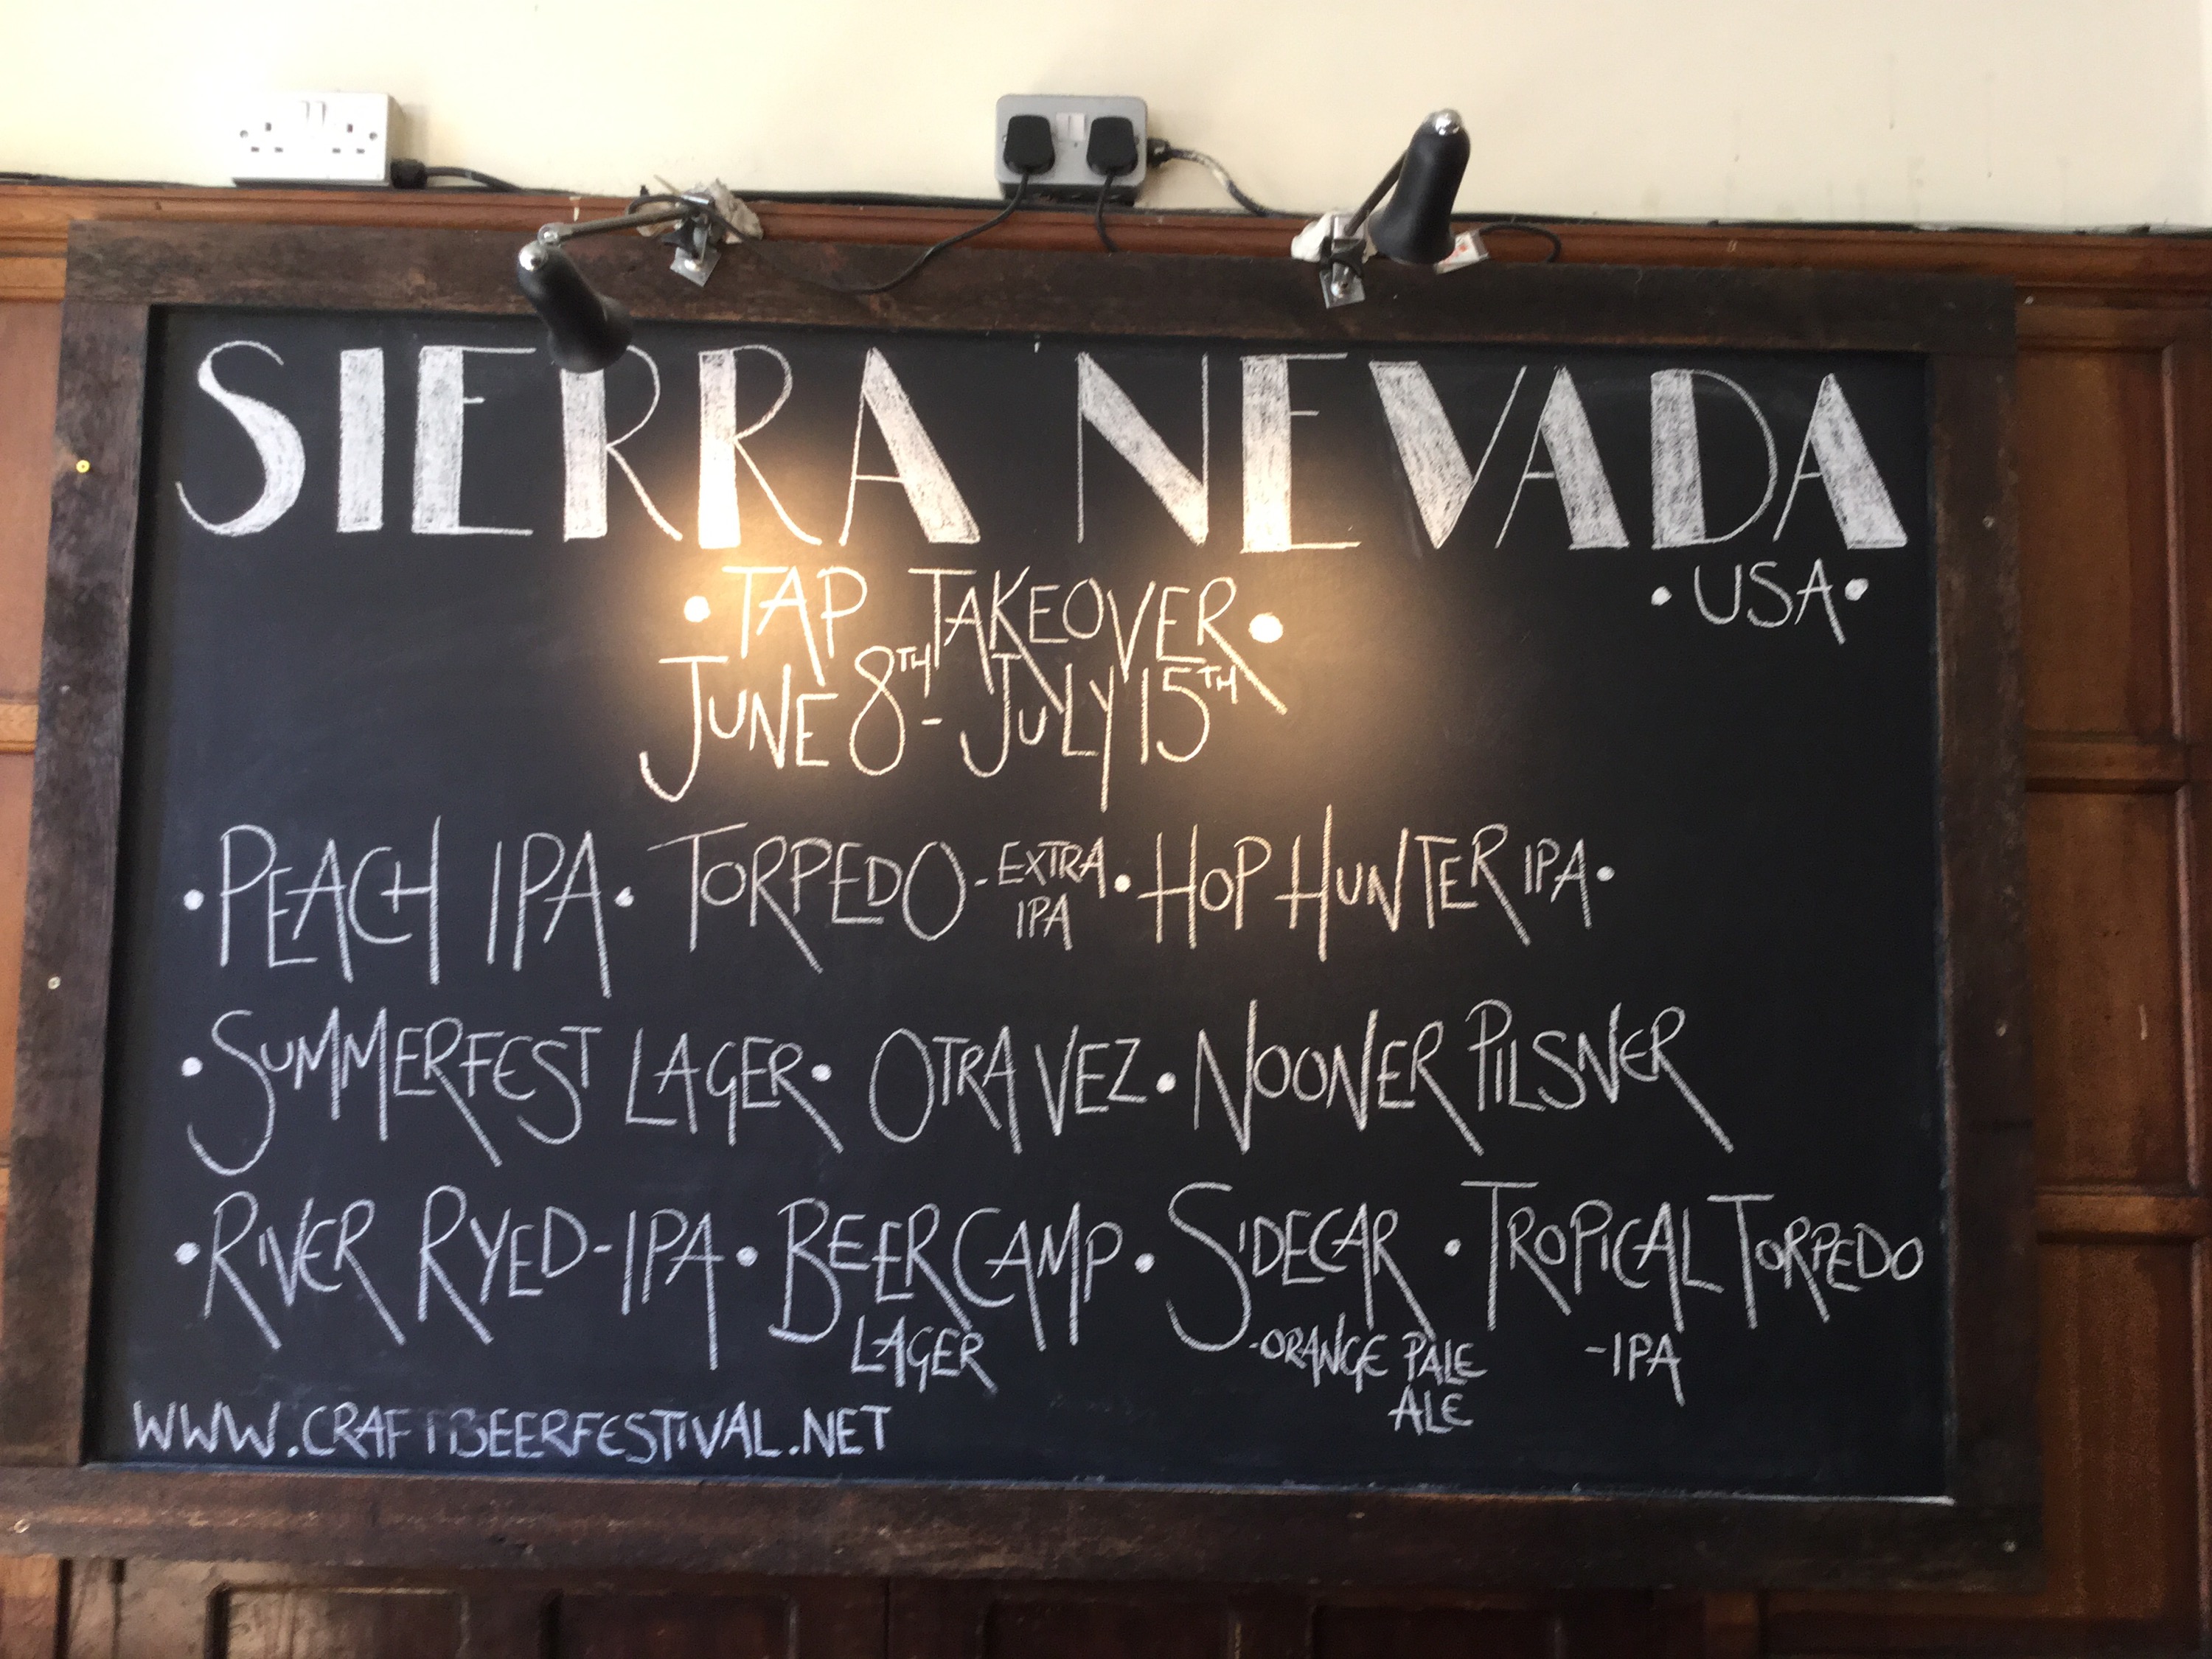 SIERRA NEVADA
• USA •
• TAP TAKEOVER •
JUNE 8TH - JULY 15TH
• PEACH IPA • TORPEDO - EXTRA IPA • HOP HUNTER IPA •
• SUMMERFEST LAGER • OTRA VEZ • NOONER PILSNER
• RIVER RYED - IPA • BEER CAMP LAGER • SIDECAR - ORANGE PALE ALE • TROPICAL TORPEDO - IPA
WWW.CRAFTBEERFESTIVAL.NET